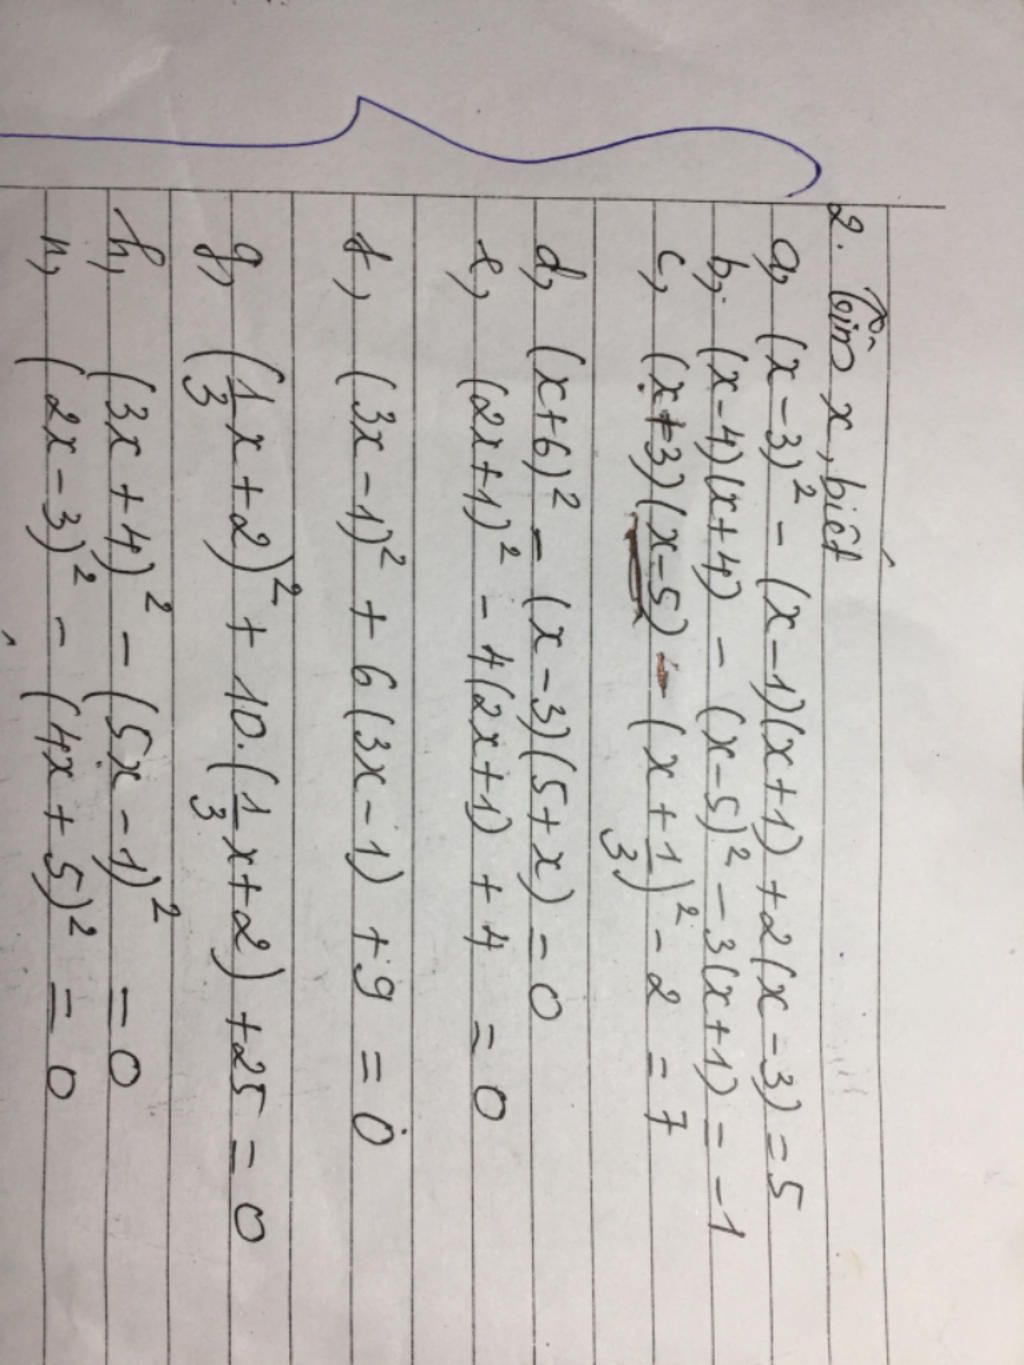 2. Tìm x, biết
a, (x-3)² - (x-1)(x+1) + 2(x-3) = 5
b, (x-4)(x+4) - (x-5)² - 3(x+1) = -1
c, (x+3)(x-5) - (x+1/3)² - 2 = 7
d, (x+6)² - (x-3)(5+x) = 0
e, (2x+1)² - 4(2x+1) + 4 = 0
f, (3x-1)² + 6(3x-1) + 9 = 0
g, (1/3x+2)² + 10.(1/3x+2) + 25 = 0
h, (3x+4)² - (5x-1)² = 0
n, (2x-3)² - (4x+5)² = 0